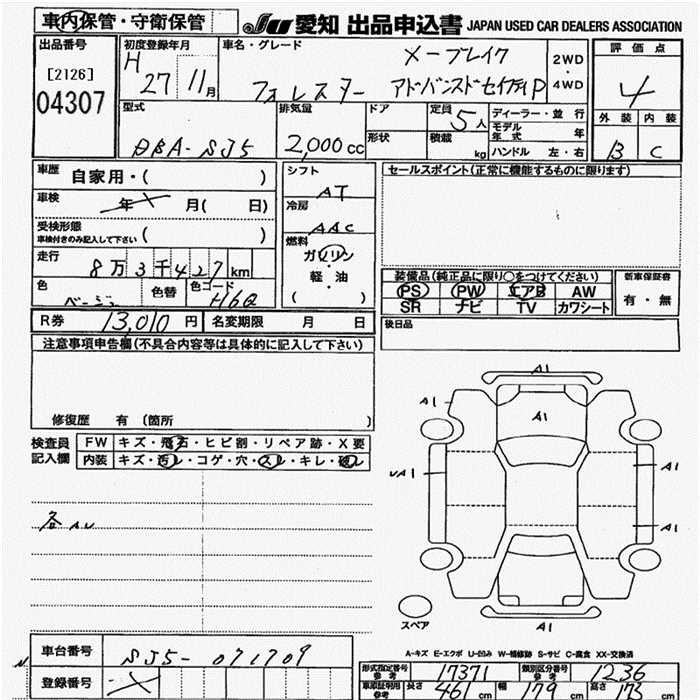 車内保管・守衛保管
JU 愛知 出品申込書 JAPAN USED CAR DEALERS ASSOCIATION
出品番号
[2126]
04307
初度登録年月
H 27 11月
車名・グレード
X-ブレイク
フォレスター アドバンスドセイフティP
2WD
・
4WD
評価点
4
外装 内装
B C
型式
DBA-SJ5
排気量
2,000cc
ドア
形状
定員 5人
積載 kg
ディーラー・並行
モデル年式 年
ハンドル 左・右
車歴 自家用・( )
車検 年 月( 日)
受検形態
車検付きのみ記入して下さい ( )
走行 8万3千427km
色 ベージュ 色替 色コード H6Q
シフト
AT
冷房
AAC
燃料
ガソリン
・
軽・油
( )
セールスポイント(正常に機能するものに限ります)
装備品(純正品に限り○をつけてください)
PS PW エアB AW
SR ナビ TV カワシート
新車保証書
有・無
後日品
R券 13,010円 名変期限 月 日
注意事項申告欄(不具合内容等は具体的に記入して下さい)
修復歴 有 (箇所 )
検査員記入欄
FW キズ・飛石・ヒビ割・リペア跡・X要
内装 キズ・汚レ・コゲ・穴・スレ・キレ・破レ
各AU
A1
A1
A1
A1
A1
A1
A1
スペア
A-キズ E-エクボ U-凹み W-補修跡 S-サビ C-腐食 XX-交換済
車台番号 SJ5-071709
登録番号
形式指定番号 参考 17371 類別区分番号 参考 1236
車両証明用 参考 長さ 461cm 幅 179cm 高さ 173cm